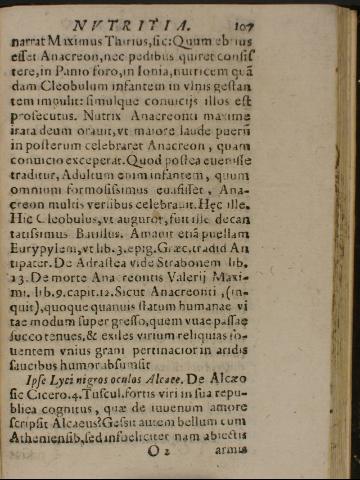 NVTRITIA. 107
narrat Maximus Thirius, sic: Quum ebrius
esset Anacreon, nec pedibus quiret consis
tere, in Panio foro, in Ionia, nutricem quã
dam Cleobulum infantem in vlnis gestan
tem impulit: simulque conuicijs illos est
prosecutus. Nutrix Anacreonti maxime
irata deum orauit, vt maiore laude puerũ
in posterum celebraret Anacreon, quam
conuicio exceperat. Quod postea euenisse
traditur, Adultum enim infantem, quum
omnium formosissimus euasisset, Ana-
creon multis versibus celebrauit. Hęc ille.
Hic Cleobulus, vt auguror, fuit ille decan
tatissimus Batillus. Amauit etiã puellam
Eurypylem, vt lib. 3. epig. Græc. tradid An
tipater. De Adrastea vide Strabonem lib.
13. De morte Anacreontis Valerij Maxi-
mi. lib. 9. capit. 12. Sicut Anacreonti, (in-
quit), quoque quanuis statum humanae vi
tae modum supergresso, quem vuae passae
succo tenues, & exiles virium reliquias fo-
uentem vnius grani pertinacior in aridis
faucibus humor absumsit
Ipse Lyci nigros oculos Alcaee. De Alcæo
sic Cicero. 4. Tuscul. fortis viri in sua repu-
blica cognitus, quæ de iuuenum amore
scripsit Alcaeus? Gessit autem bellum cum
Atheniensib, sed infeliciter nam abiectis
O 2 armis